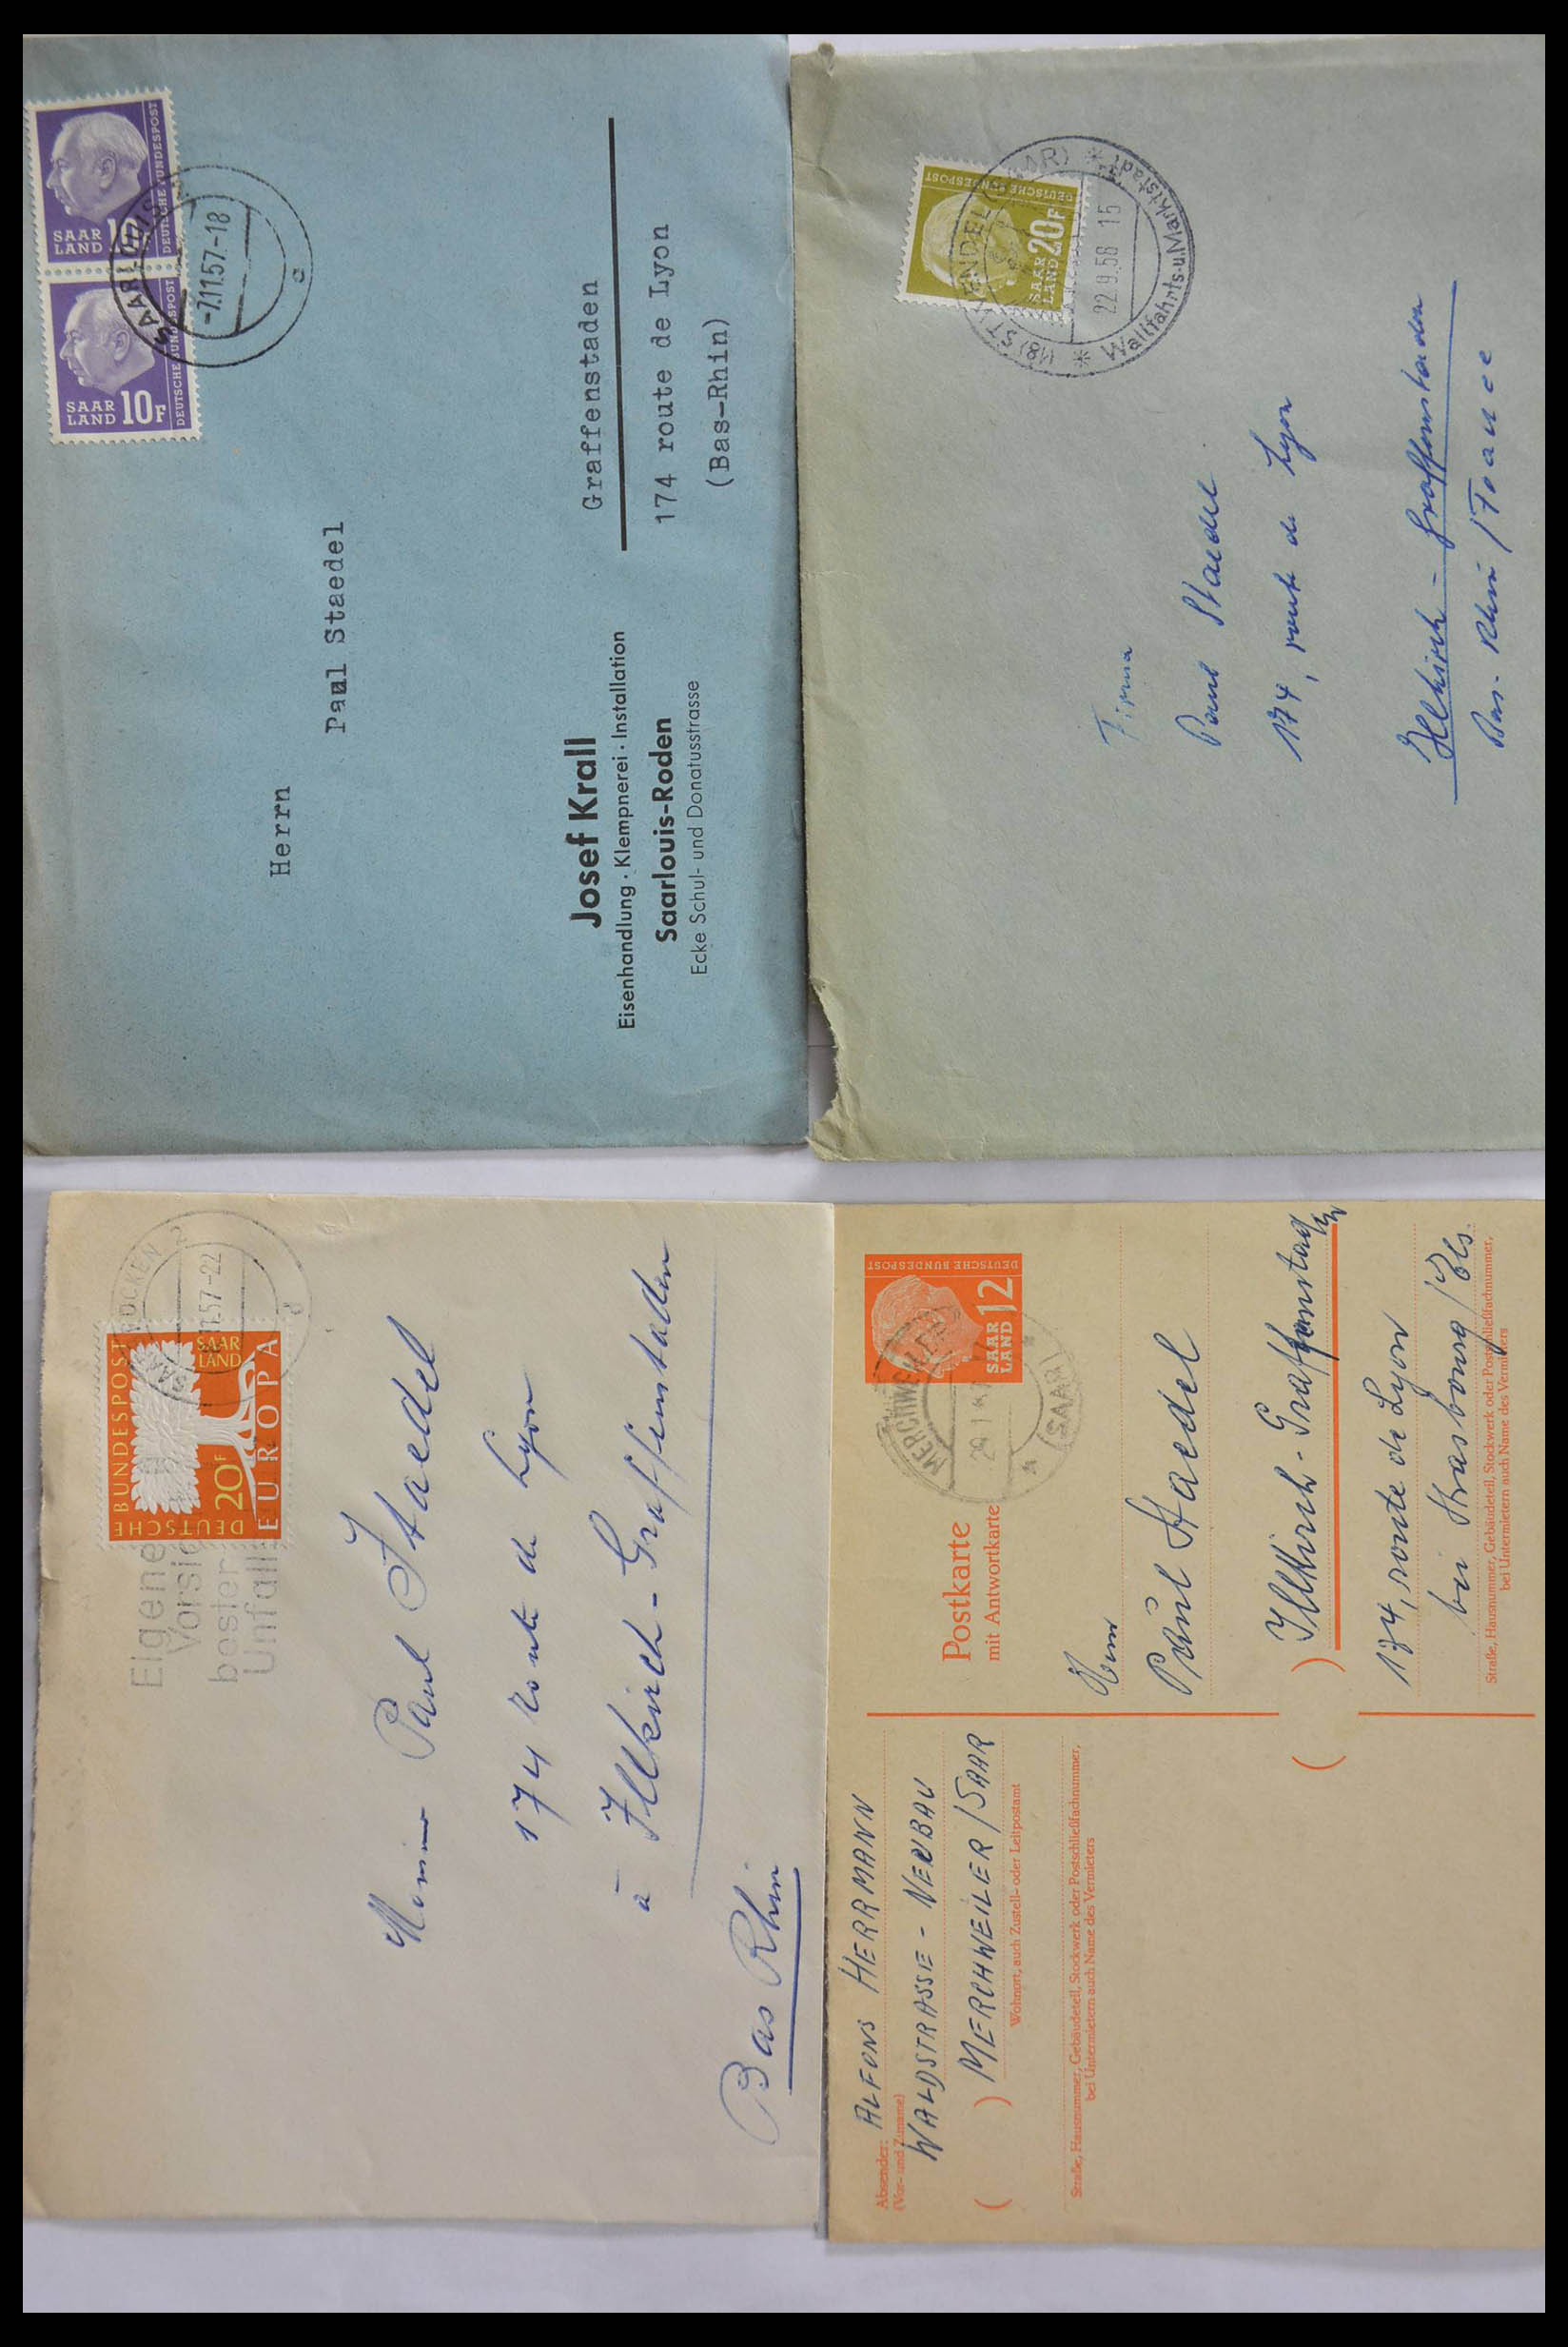 SAAR
LAND 10F
DEUTSCHE BUNDESPOST
SAAR
LAND 10
DEUTSCHE BUNDESPOST
SAARLOUIS
-7.11.57.-18
c
Herrn
Paul Staedel
Graffenstaden
174 route de Lyon
(Bas-Rhin)
Josef Krall
Eisenhandlung · Klempnerei · Installation
Saarlouis-Roden
Ecke Schul- und Donatusstrasse
DEUTSCHE BUNDESPOST
SAAR
LAND 20F
(18) ST. WENDEL (SAAR)
22.9.58 15
Wallfahrts-u. Marktstadt
Firma
Paul Staedel
174, route de Lyon
Illkirch - Graffenstaden
Bas-Rhin / France
DEUTSCHE BUNDESPOST
SAAR
LAND
20F
EUROPA
57-22
d
Eigene
Vorsi
bester
Unfall
Monsieur Paul Staedel
174 Route de Lyon
à Illkirch-Graffenstaden
Bas Rhin
DEUTSCHE BUNDESPOST
SAAR
LAND 12
MERCHWEILER
(SAAR)
Postkarte
mit Antwortkarte
Absender: ALFONS HERRMANN
(Vor- und Zuname)
WALDSTRASSE - NEUBAU
( ) MERCHWEILER / SAAR
Wohnort, auch Zustell- oder Leitpostamt
Straße, Hausnummer, Gebäudeteil, Stockwerk oder Postschließfachnummer,
bei Untermietern auch Name des Vermieters
Herrn
Paul Staedel
( ) Illkirch-Graffenstaden
174, route de Lyon
bei Strasbourg / Els.
Straße, Hausnummer, Gebäudeteil, Stockwerk oder Postschließfachnummer,
bei Untermietern auch Name des Vermieters